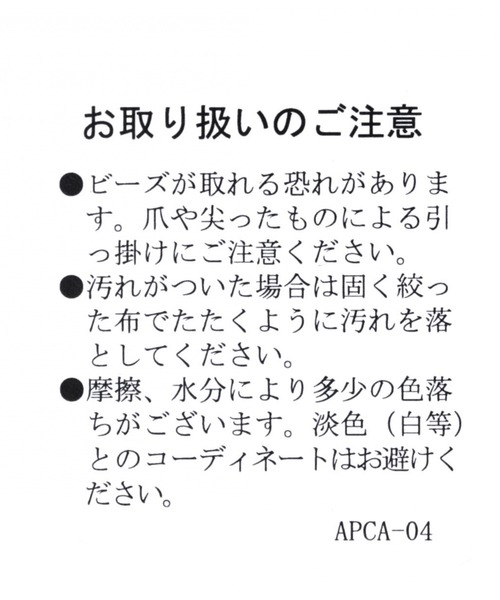 お取り扱いのご注意
●ビーズが取れる恐れがありま
す。爪や尖ったものによる引
っ掛けにご注意ください。
●汚れがついた場合は固く絞っ
た布でたたくように汚れを落
としてください。
●摩擦、水分により多少の色落
ちがございます。淡色（白等）
とのコーディネートはお避けく
ださい。
APCA-04